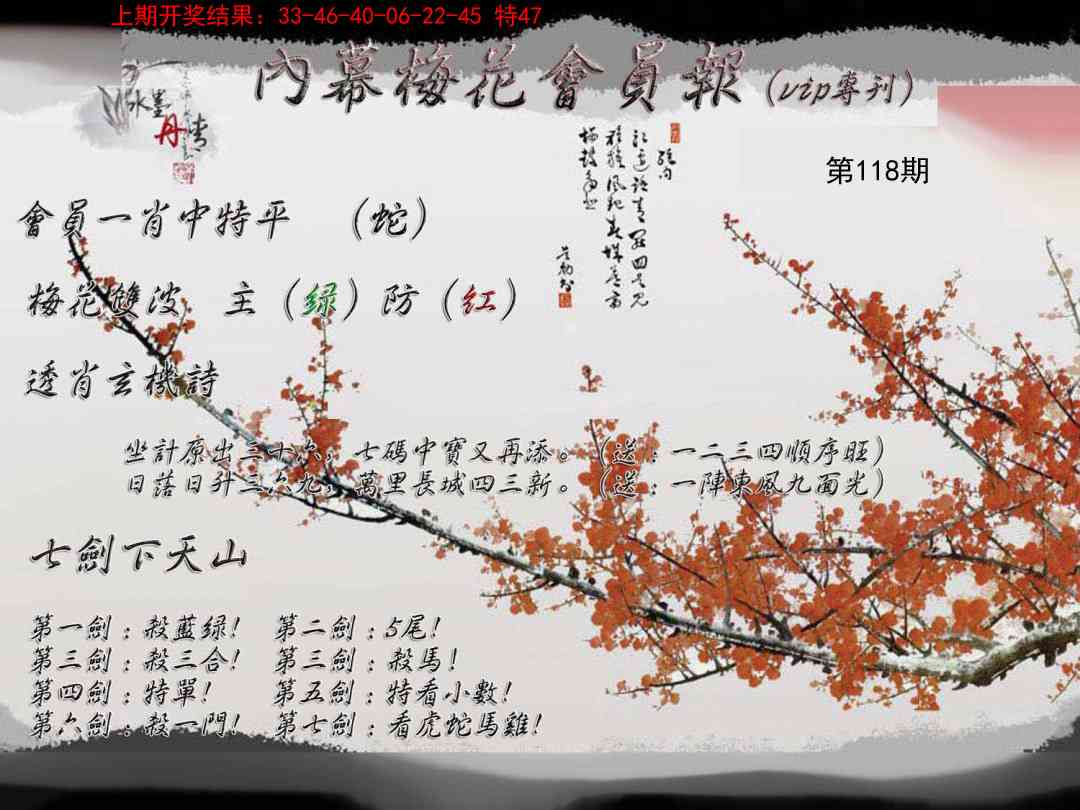 上期开奖结果：33-46-40-06-22-45 特47
內幕梅花會員報（vip專刊）
水墨
丹青
第118期
會員一肖中特平 （蛇）
梅花雙波 主（绿）防（红）
透肖玄機詩
坐計原出三十次，七碼中寶又再添。（送：一二三四順序旺）
日落日升三六九，萬里長城四三新。（送：一陣東風九面光）
七劍下天山
第一劍：殺藍绿！ 第二劍：5尾！
第三劍：殺三合！ 第三劍：殺馬！
第四劍：特單！ 第五劍：特看小數！
第六劍：殺一門！ 第七劍：看虎蛇馬雞！